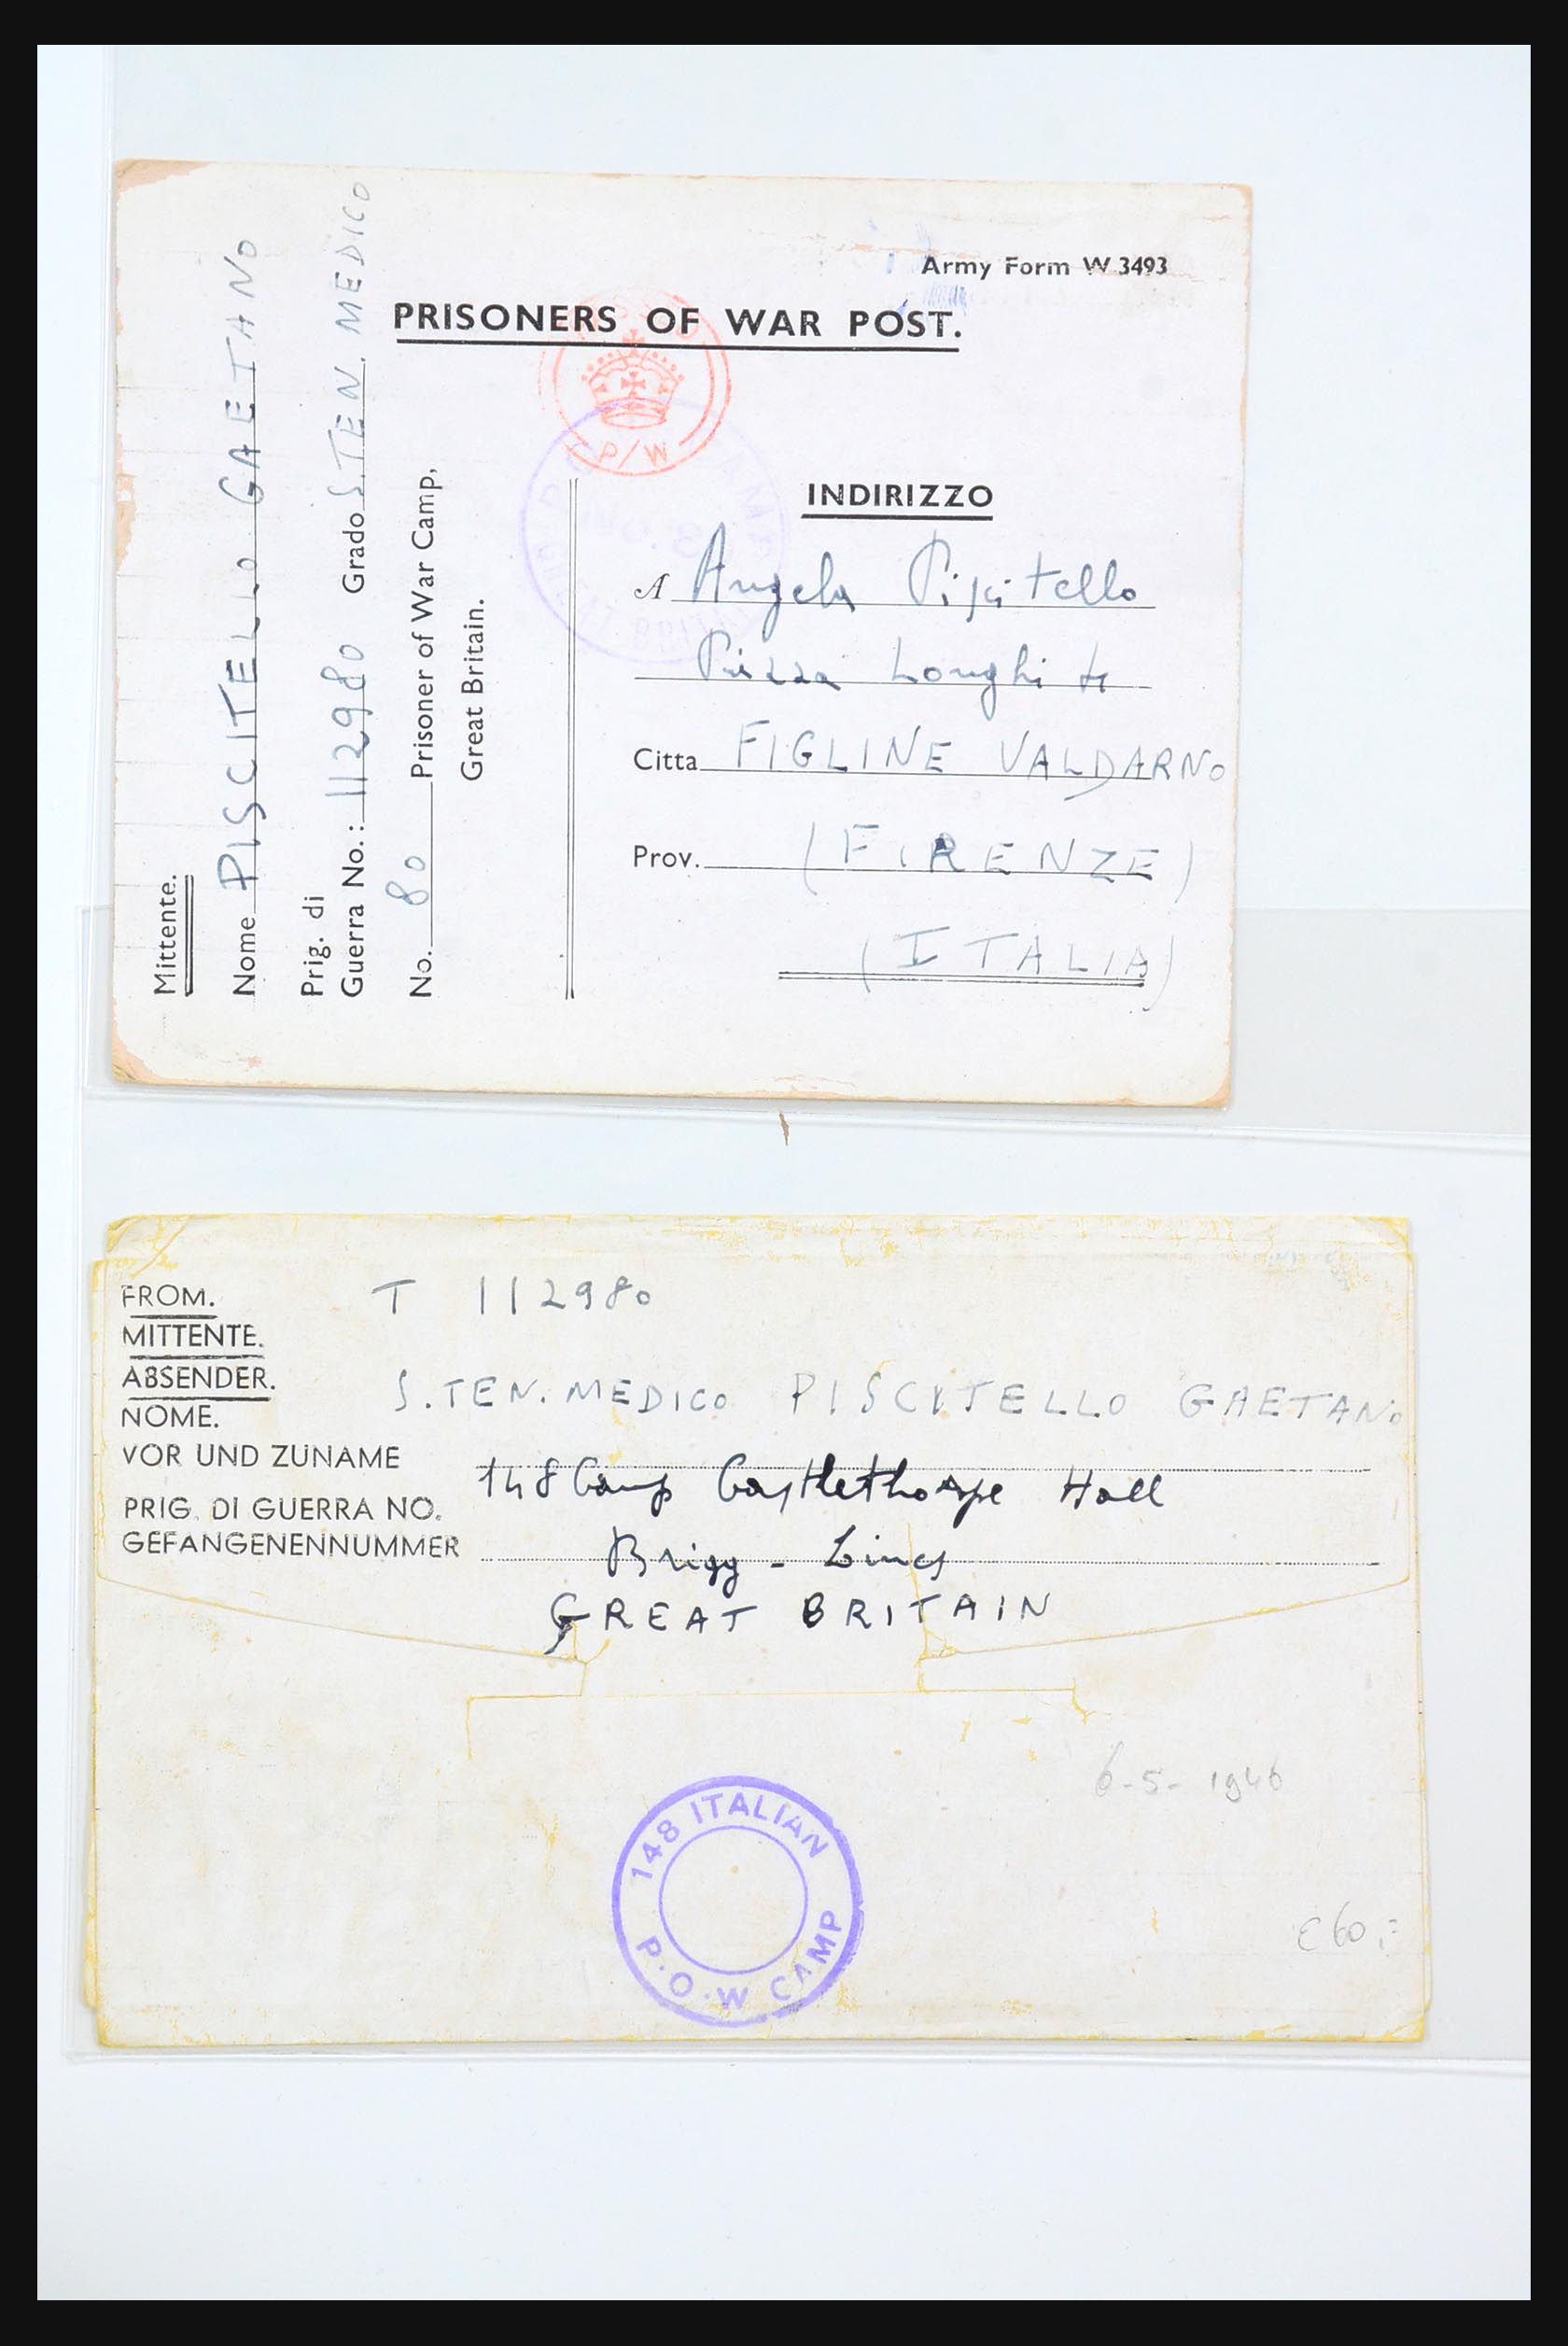 Army Form W 3493
PRISONERS OF WAR POST.
P/W
Mittente.
Nome PISCITELLO GAETANO
Prig. di
Guerra No.: 112980 Grado S.TEN. MEDICO
No. 80 Prisoner of War Camp,
Great Britain.
INDIRIZZO
A Angela Piscitello
Piazza Longhi
Citta FIGLINE VALDARNO
Prov. (FIRENZE)
(ITALIA)
FROM. T 112980
MITTENTE.
ABSENDER. S.TEN. MEDICO PISCITELLO GAETANO
NOME.
VOR UND ZUNAME
148 Camp Castlethorpe Hall
PRIG. DI GUERRA NO.
GEFANGENENNUMMER Brigg - Lincs
GREAT BRITAIN
6-5-1946
148 ITALIAN
P.O.W CAMP
€60,=